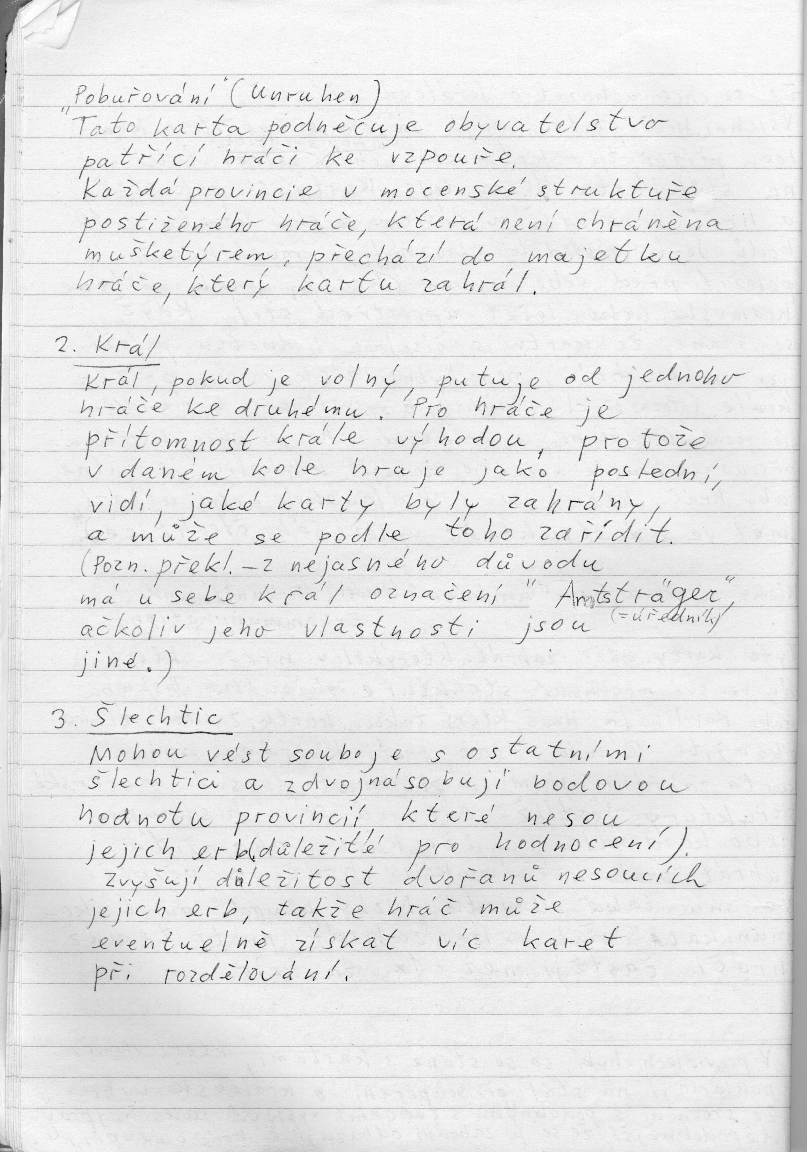 "Pobuřování" (Unruhen)
Tato karta podněcuje obyvatelstvo
patřící hráči ke vzpouře.
Každá provincie v mocenské struktuře
postiženého hráče, která není chráněna
mušketýrem, přechází do majetku
hráče, který kartu zahrál.
2. Král
Král, pokud je volný, putuje od jednoho
hráče ke druhému. Pro hráče je
přítomnost krále výhodou, protože
v daném kole hraje jako poslední,
vidí, jaké karty byly zahrány,
a může se podle toho zařídit.
(Pozn. překl. – z nejasného důvodu
má u sebe král označení "Amtsträger",
(=úředník)
ačkoliv jeho vlastnosti jsou
jiné.)
3. Šlechtic
Mohou vést souboje s ostatními
šlechtici a zdvojnásobují bodovou
hodnotu provincií které nesou
jejich erb (důležité pro hodnocení).
Zvyšují důležitost dvořanů nesoucích
jejich erb, takže hráč může
eventuelně získat víc karet
při rozdělování.